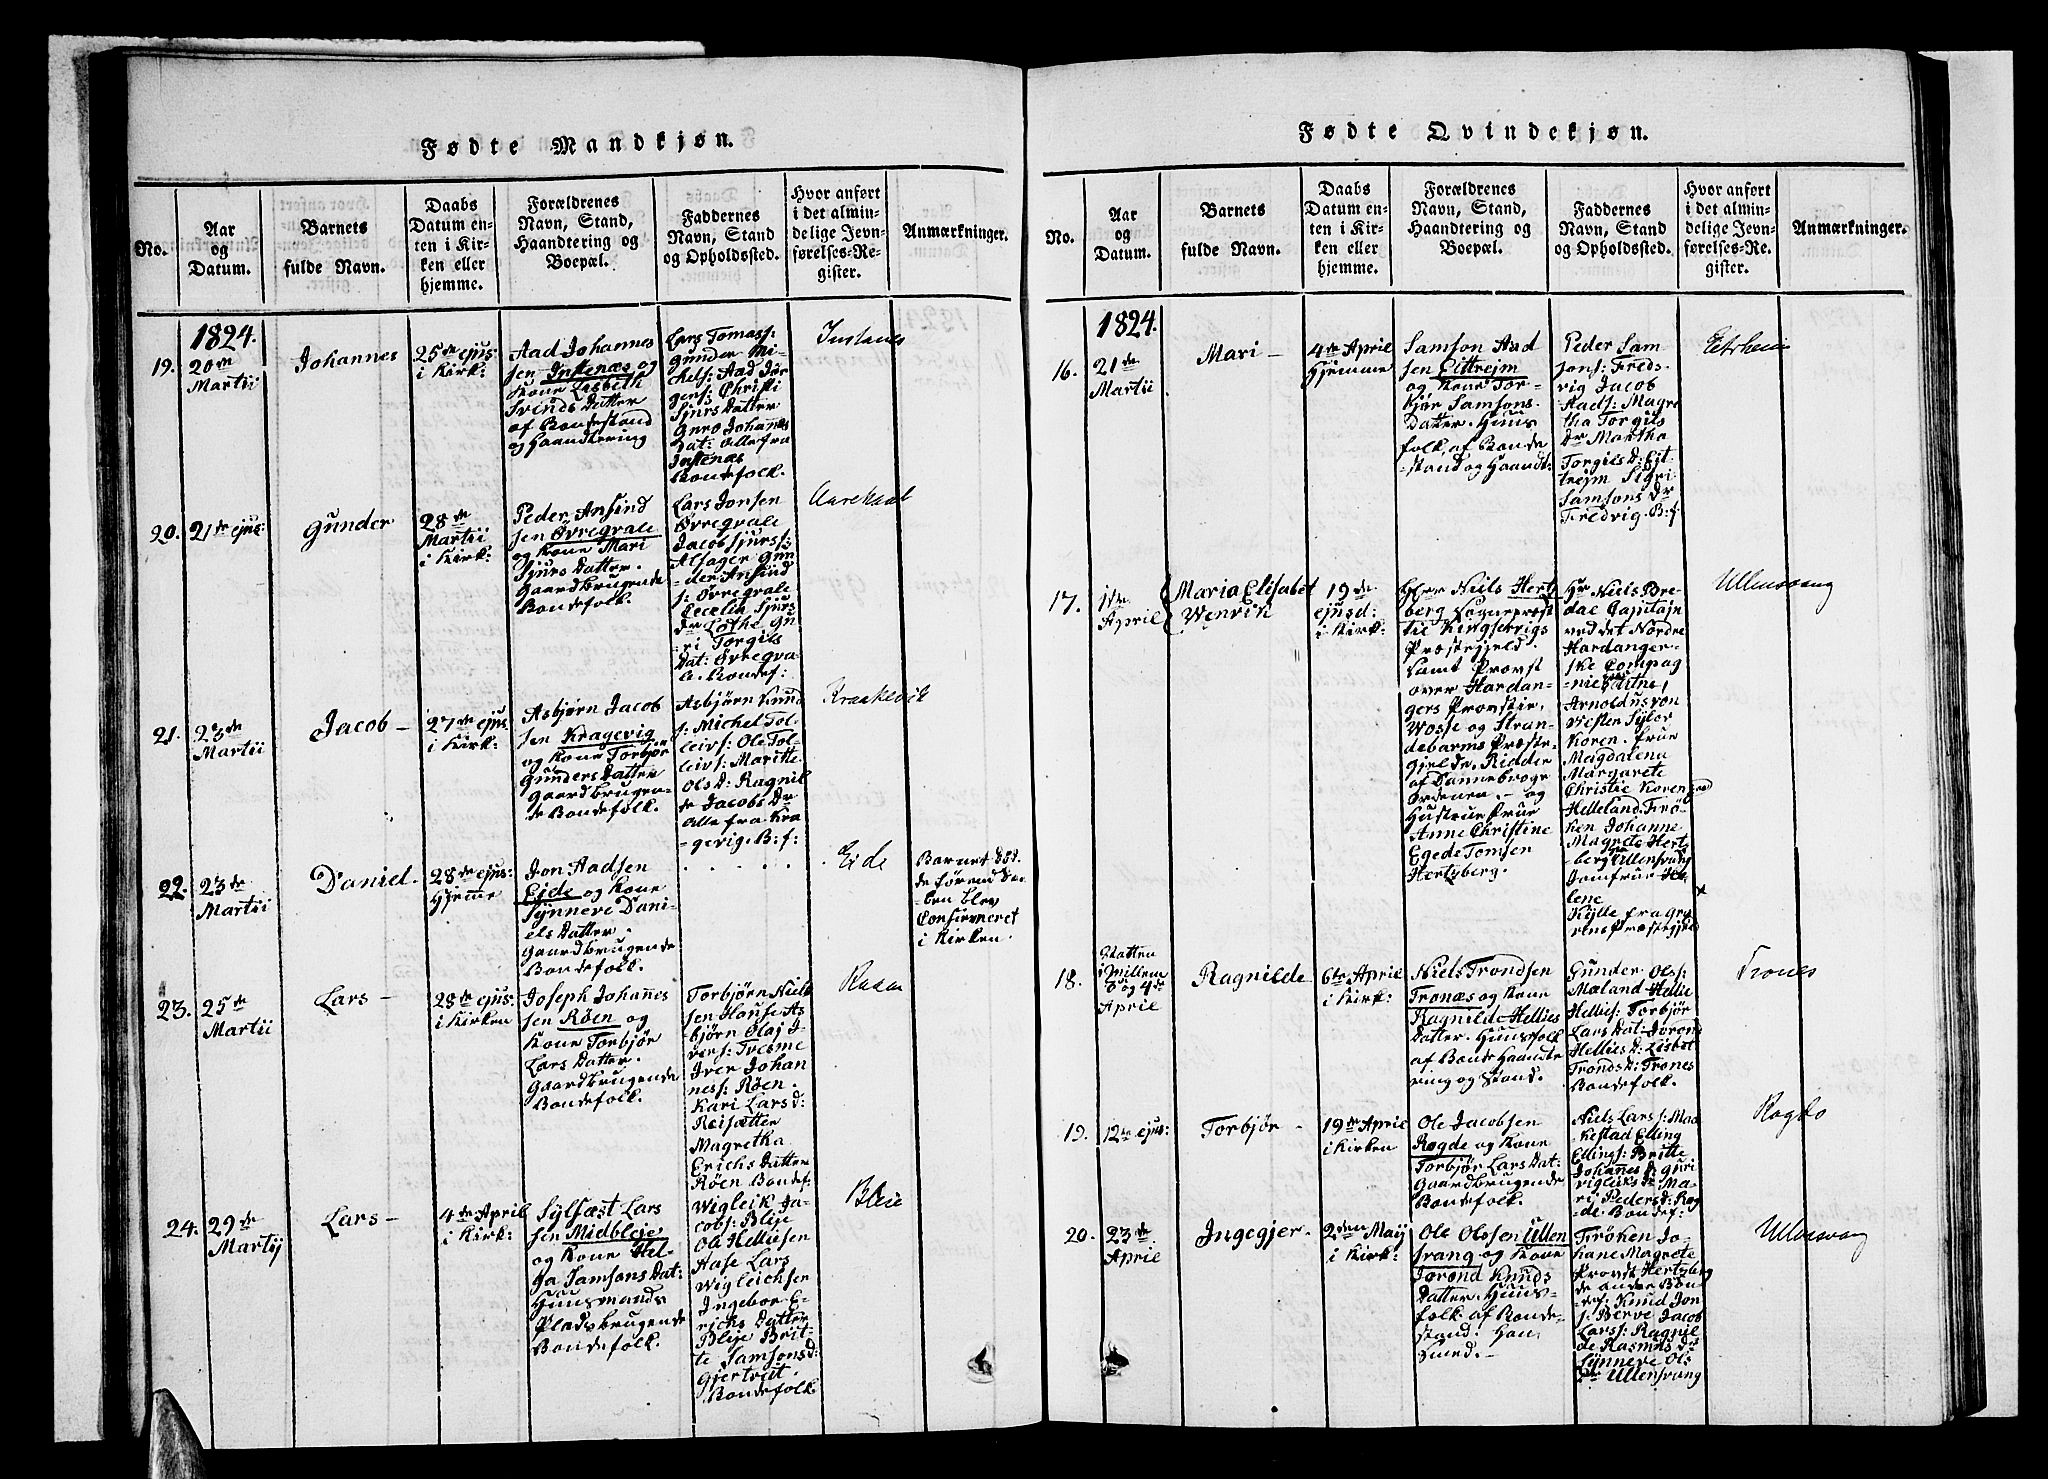 Fødte Mandkjøn.
No.
Aar
og
Datum.
Barnets
fulde Navn.
Daabs
Datum en-
ten i Kir-
ken eller
hjemme.
Forældrenes
Navn, Stand,
Haandtering og
Boepæl.
Faddernes
Navn, Stand
og Opholdssted.
Hvor anført
i det almin-
delige Jevn-
førelses-Re-
gister.
Anmærkninger.
1824.
19.
20de
Martii
Johannes
25de ejus:
i Kirk:
Aad Johannes
sen Instenæs og
Kone Lisbeth
Svends Datter
af Bondestand
og Haandtering
Lars Tomass:
Gunder Mi-
chels: Aad Jør
gers: Christi
Sjurs Datter
Guro Johanes
Dat: Alle fra
Instenæs
Bondefolk.
20.
21de ejus:
Gunder
28de
Martii
i Kirk:
Peder Ansind
sen Øvregvale
og Kone Mari
Sjurs Datter.
Gaardbrugende
Bondefolk.
Lars Jonsen
Øvregvale
Jacob Sjurss:
Alsager Gun
der Ansind
s: Øvregvale
Cecelia Sjurs
Dr Lothe Gu
ri Torgils
Dat: Øvregva-
le. Bondef:
21.
23de
Martii
Jacob -
27de ejus:
i Kirk:
Asbjørn Jacob
sen Kragevig
og Kone Torbjør
Gunders Datter
Gaardbrugen-
de Bondefolk.
Asbjørn Knud
s: Michel Tol-
leivs: Ole Tol-
leivs: Maritte
Olsd: Ragnil
de Jacobs Dr
Alle fra Kra
gevig. B: f:
Kraakevik
22.
23de
Martii
Daniel.
28de ejus:
Hjemme
Jon Aadsen
Eide og Kone
Synneve Dani-
els Datter.
Gaardbrugende
Bondefolk.
Eide
Barnet død-
de førend Daa-
ben blev
Confirmeret
i Kirken.
23.
25de
Martii
Lars -
28de ejus:
i Kirken
Joseph Johannes
sen Røen og
Kone Torbjør
Lars Datter.
Gaardbrugende
Bondefolk.
Torbjørn Niels
sen House As
bjørn Olaj I-
vers: Tresme
Iver Johan
ness: Røen.
Kari Lars d:
Reisætter
Magretha
Erichs Datter
Røen Bondef:
24.
29de
Martij
Lars -
4de April
i Kirk:
Sylfæst Lars
sen Midbleje
og Kone Hel-
ga Samsons Dat:
Huusmands
Pladsbrugende
Bondefolk.
Wigleik Ja-
cobs: Bleje
Ole Hellissen
Aase Lars
Wigleichsen
Ingebor E-
richs Datter
Bleje Brit-
te Samsons d:
Gjertveit.
Bondefolk
Bleie
Fødte Qvindekjøn.
No.
Aar
og
Datum.
Barnets
fulde Navn.
Daabs
Datum en-
ten i Kir-
ken eller
hjemme.
Forældrenes
Navn, Stand,
Haandtering og
Boepæl.
Faddernes
Navn, Stand
og Opholdssted.
Hvor anført
i det almin-
delige Jevn-
førelses-Re-
gister.
Anmærkninger.
1824.
16.
21de
Martii
Mari -
4de April
Hjemme
Samson Aad
sen Eittrejm
og Kone Tor-
kjør Samsons-
Datter. Huus
folk, af Bonde
stand og Haandt:
Peder Sam
sons: Freds-
vig Jacob
Aads: Magre
tha Torgils
Dr Martha
Torgils D: Eit-
trejm Sigri
Samsons Dr
Fredvig. B: f:
Eitrheim
17.
1de
April
Maria Elisabet
Wenrik
19de
ejusd:
i Kirk:
Herr Niels Hertz
berg Sogneprest
til Kingservigs
Præstegjeld.
Samt Provst
over Hardan-
gers Provstie,
Wosse og Stran-
debarms Præste-
gjelde, Ridder
af Dannebroge
Ordenen. - og
Hustrue Frue
Anne Christine
Egede Tomsen
Hertzberg.
Hr Niels Bre-
dal Capitajn
ved det Nordre
Hardanger-
ske Compag
nie
Arnoldus von
Westen Sylor
Koren. Frue
Magdalena
Margarete
Christie Koren
Helleland. Frø-
ken Johanne
Magrete Hertz
berg fra Ullensvang
Jomfrue He-
lene
Kylle fra Gra
vens Præstegjeld
Ullensvang
18.
Natten
imillem
3de og 4de
April
Ragnilde
6te April
i Kirk:
Niels Trondsen
Tronæs og Kone
Ragnilde Hellies
Datter. Huusfolk
af Bonde Haandte
ring og Stand.
Gunder Olss:
Mæland Hellie
Hellies: Torbjør
Lars Dat: Jorond
Hellies D: Lisbet
Tronds D: Trones
Bondefolk.
Trones
19.
12te ejus:
Torbjør -
19de April
i Kirken
Ole Jacobsen
Rogde og Kone
Torbjør Lars Dat:
Gaardbrugende
Bondefolk.
Niels Lars s: Maa
kestad Elling
Ellings: Britte
Johannes D: Guri
Vigleiks D: Ma-
ri Peders D: Rog
de. Bondef:
Rogde
20.
23de
April
Ingegjer -
2den Maij
i Kirk:
Ole Olssen Ullen
svang og Kone
Jorond Knuds
Datter. Huus-
folk af Bonde-
stand: Han
Smed. -
Frøken Jo-
hane Magrete
Provst Hertzberg
de andre Bøn
der, Knud Jon
s: Berve Jacob
Larss: Ragnil
de Rasmus Dr
Synneve Ols
Dr Ullensvang
Ullensvang